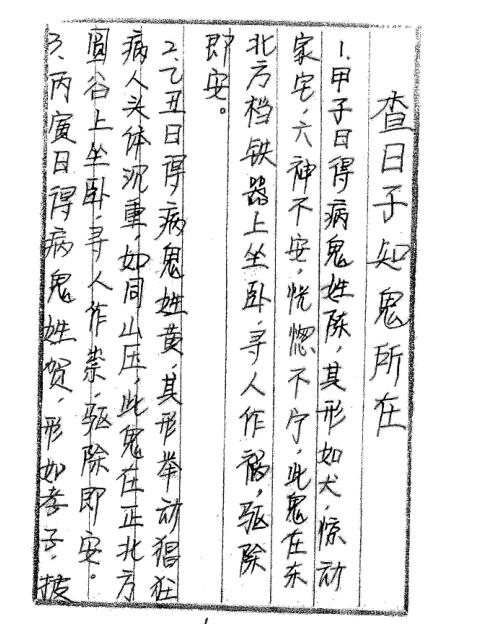 查日子知鬼所在
1.甲子日得病鬼姓陈，其形如犬，惊动
家宅，六神不安，恍惚不宁，此鬼在东
北方档铁器上坐卧，寻人作祸，驱除
即安。
2.乙丑日得病鬼姓黄，其形举动猖狂
病人头体沉重，如同山压，此鬼在正北方
圆谷上坐卧，寻人作祟，驱除即安。
3.丙寅日得病鬼姓贺，形如孝子，披
1